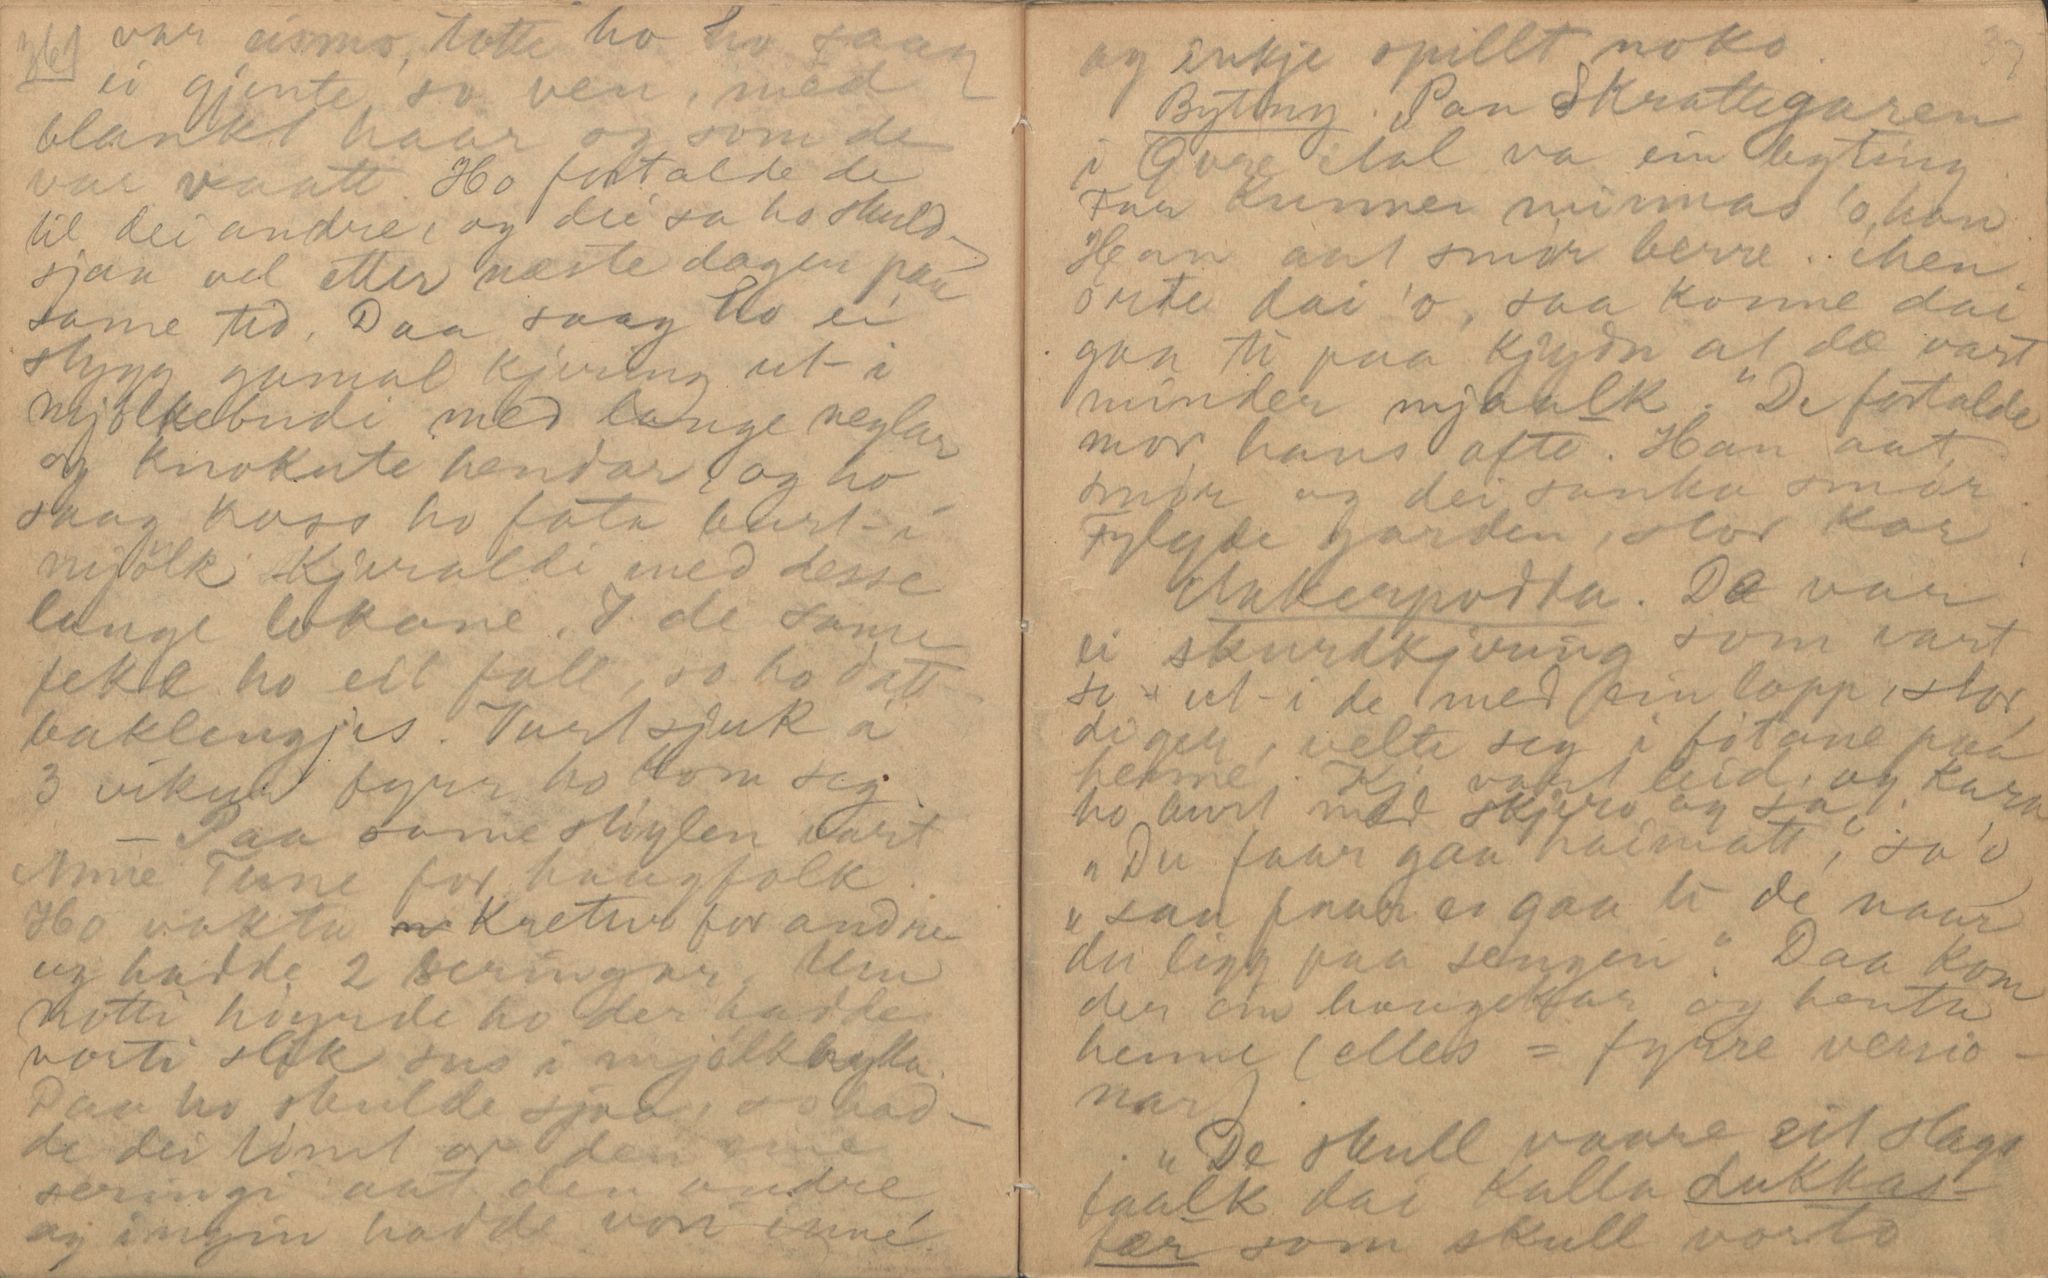 36
var eismo, totte ho ho saag
ei gjente, so ven, med
blankt haar og som de
var vaatt. Ho fortalde de
til dei andre, og dei sa ho skuld-
sjaa vel etter næste dagen paa
same tid. Daa saag ho ei
stygg gamal kjering ut-i
mjølkebudi med lange neglar
og knokute hendar, og ho
saag koss ho fata burt-i
mjölk kjeraldi med desse
lange lokane. I de same
fekk ho eit fall, so ho datt
baklengjes. Vart sjuk a
3 vikur fyrr ho kom seg.
– Paa same stöylen vart
Anne Tune for haugfolk.
Ho vakta kretur for andre
og hadde 2 seringar. Um
notti höyrde ho der hadde
vorti slik sus i mjölkhylla.
Daa ho skulde sjaa, so had-
de dei tömt or den eine
seringi aat den andre
og ingin hadde vori inné
37
og inkje spillt noko.
Byting. "Paa Skrattegaren
i Øvre Aal va ein byting
Far kunner minnas 'o, han
Han aat smör berre. Men
örte dai 'o, saa konne dai
gaa ti paa kjydn at dæ vart
minder mjaalk." De fortalde
mor hans ofte. Han aat
smör og dei sanka smör.
Fylgde garden, stor kar.
Aakerpodda. De var
ei skurdkjering som vart
so ut-i de med ein lopp, stor,
diger, velte seg i fótane paa
henne. Kj. vart leid, og kara
ho burt med skjero og sa:
"Du faar gaa haimatt," sa 'o
"saa faar eg gaa ti de naar
du ligg paa sengen." Daa kom
der ein haugekar og henta
henne (elles = fyrre versio-
nar).
"De skull vaare eit slags
faalk dai kalla Lukkas-
fær som skull vorto